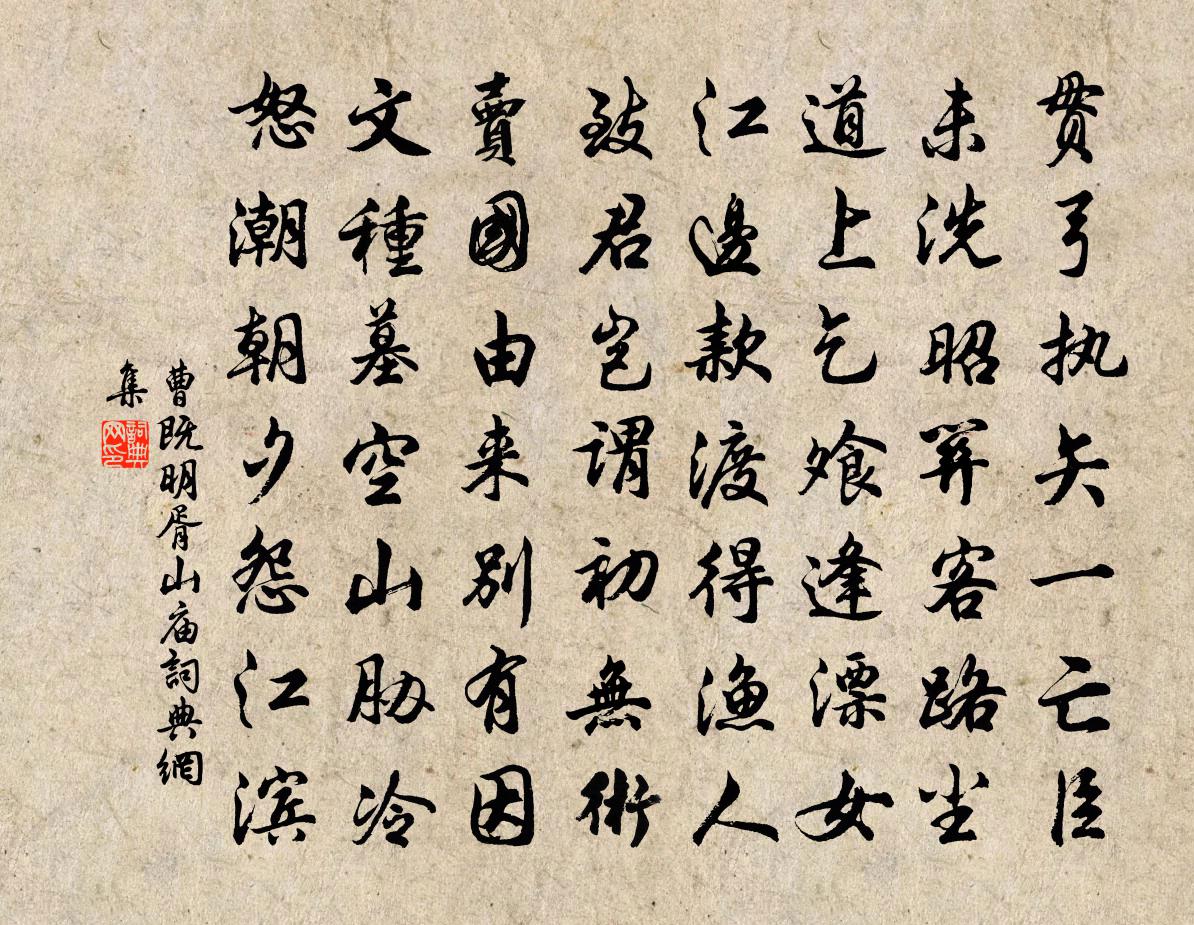 贯弓执矢一亡臣
未洗昭关客路尘
道上乞飧逢漂女
江邊款渡得漁人
致君岂謂初無術
賣國由来别有因
文種墓空山胁冷
怒潮朝夕怨江滨
曹既明胥山庙詞典網
集
詞典网印